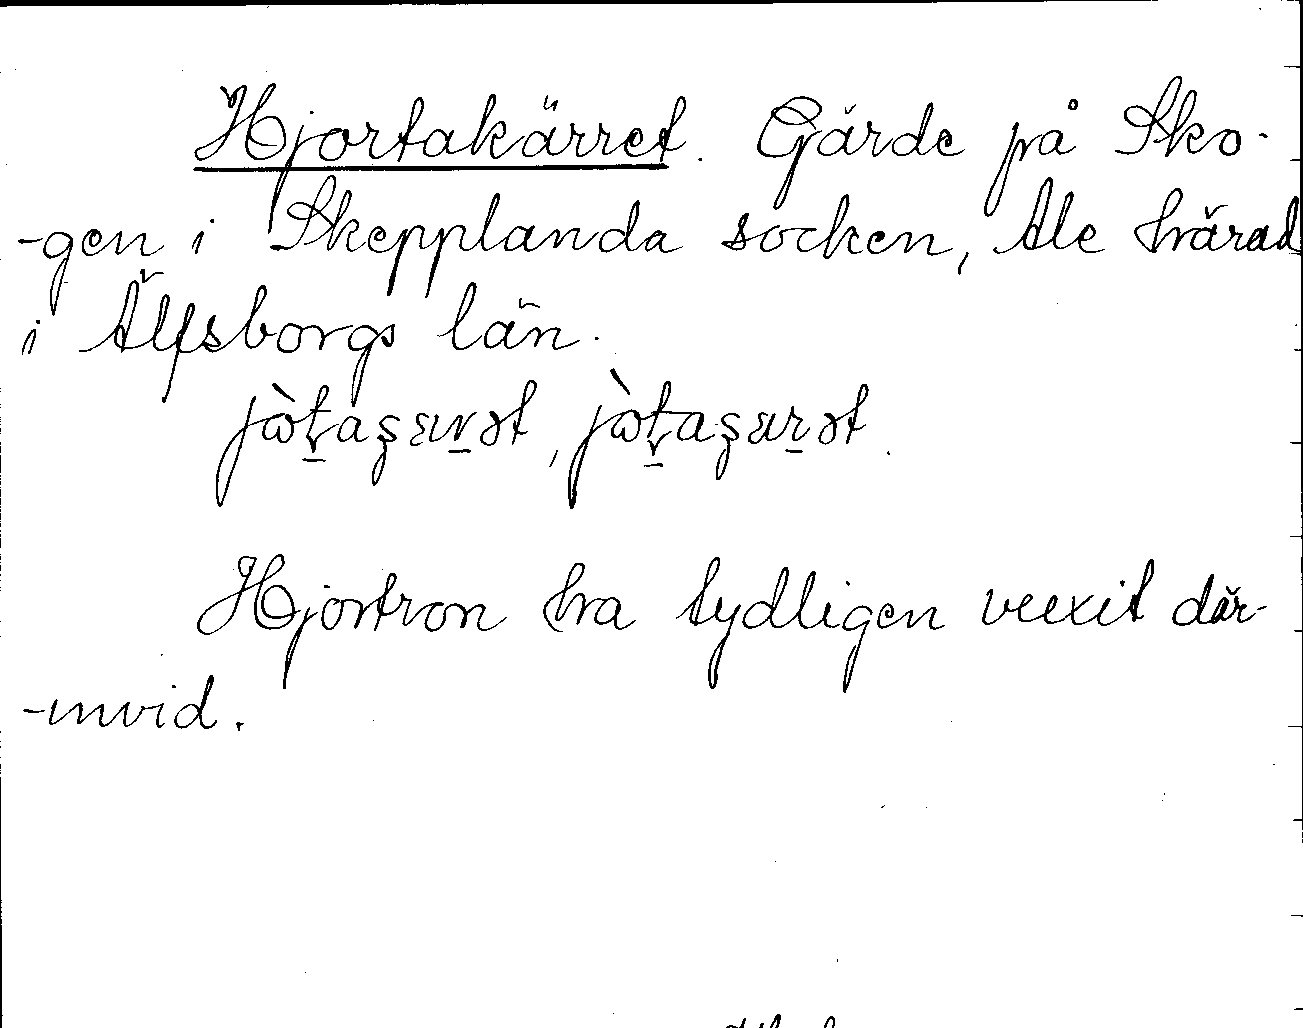 Hjortakärret. Gärde på Sko-
-gen i Skepplanda socken, Ale härad
i Älfsborgs län.
Hjortron ha tydligen vuxit där-
-invid.